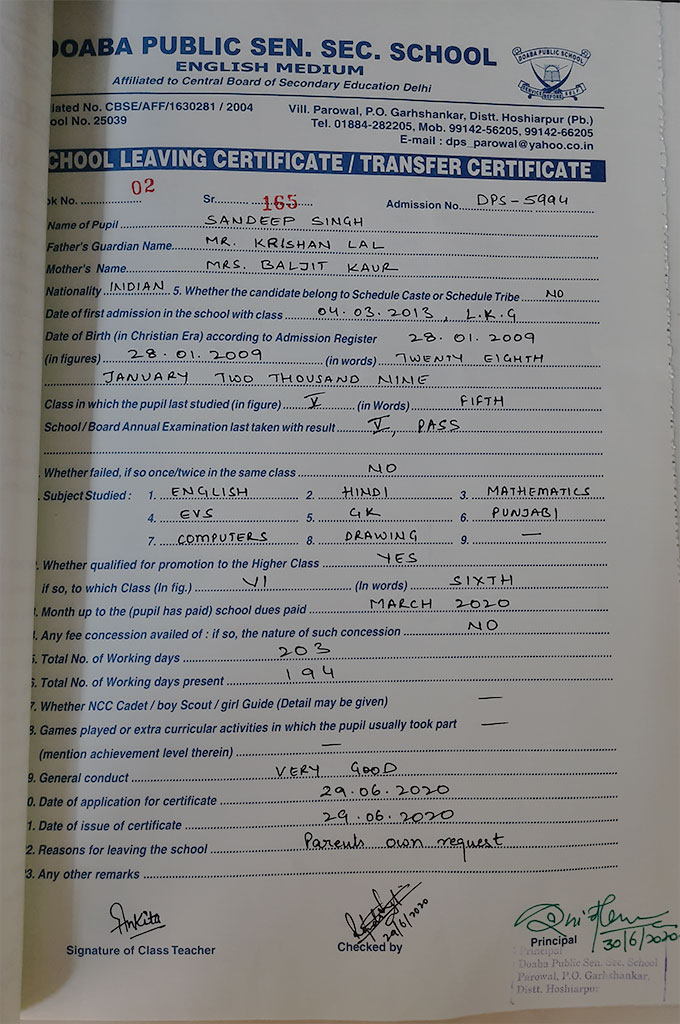 DOABA PUBLIC SEN. SEC. SCHOOL
ENGLISH MEDIUM
Affiliated to Central Board of Secondary Education Delhi
DOABA PUBLIC SCHOOL
SERVICE BEFORE SELF
liated No. CBSE/AFF/1630281 / 2004
ool No. 25039
Vill. Parowal, P.O. Garhshankar, Distt. Hoshiarpur (Pb.)
Tel. 01884-282205, Mob. 99142-56205, 99142-66205
E-mail : dps_parowal@yahoo.co.in
CHOOL LEAVING CERTIFICATE / TRANSFER CERTIFICATE
ok No. 02 Sr. 165 Admission No. DPS-5994
Name of Pupil SANDEEP SINGH
Father's Guardian Name MR. KRISHAN LAL
Mother's Name MRS. BALJIT KAUR
Nationality INDIAN 5. Whether the candidate belong to Schedule Caste or Schedule Tribe NO
Date of first admission in the school with class 04.03.2013, L.K.G
Date of Birth (in Christian Era) according to Admission Register 28.01.2009
(in figures) 28.01.2009 (in words) TWENTY EIGHTH
JANUARY TWO THOUSAND NINE
Class in which the pupil last studied (in figure) V (in Words) FIFTH
School / Board Annual Examination last taken with result V, PASS
Whether failed, if so once/twice in the same class NO
Subject Studied : 1. ENGLISH 2. HINDI 3. MATHEMATICS
4. EVS 5. GK 6. PUNJABI
7. COMPUTERS 8. DRAWING 9. —
Whether qualified for promotion to the Higher Class YES
if so, to which Class (In fig.) VI (In words) SIXTH
. Month up to the (pupil has paid) school dues paid MARCH 2020
. Any fee concession availed of : if so, the nature of such concession NO
5. Total No. of Working days 203
6. Total No. of Working days present 194
7. Whether NCC Cadet / boy Scout / girl Guide (Detail may be given) —
8. Games played or extra curricular activities in which the pupil usually took part —
(mention achievement level therein) —
9. General conduct VERY GOOD
0. Date of application for certificate 29.06.2020
1. Date of issue of certificate 29.06.2020
2. Reasons for leaving the school Parents own request
3. Any other remarks
Ankita
29/6/2020
30/6/2020
Signature of Class Teacher Checked by Principal
Principal
Doaba Public Sen. Sec. School
Parowal, P.O. Garhshankar,
Distt. Hoshiarpur